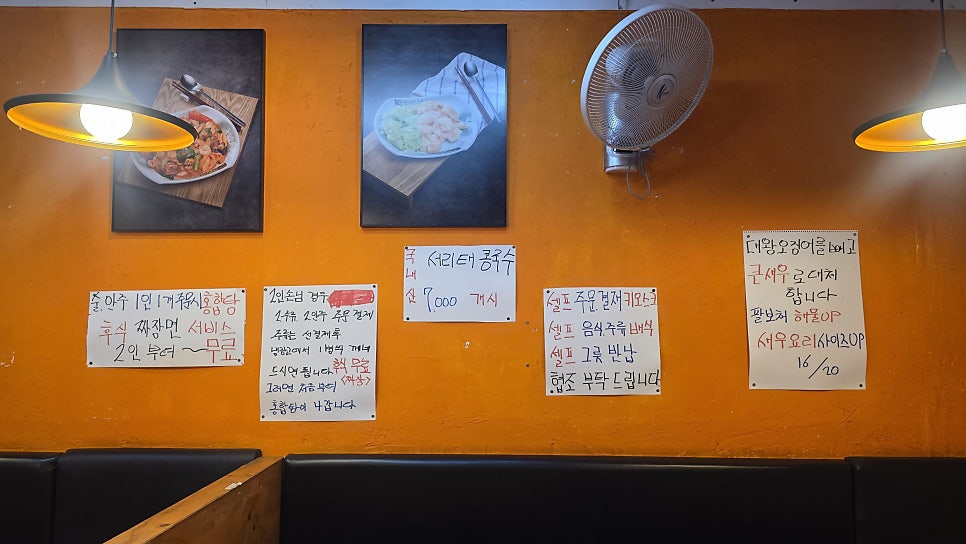 술,안주 1인 1개 주문시 홍합탕
후식 짜장면 서비스
2인 부터~ 무료
2인손님 경우
2주류 2안주 주문 결제
주류는 선결제 후
냉장고에서 1병씩 꺼내
드시면 됩니다 후식 무료
<짜장>
그러면 처음부터
홍합탕이 나갑니다
국내산
서리태 콩국수
7,000 개시
셀프 주문.결제 키오스크
셀프 음식.주류 서빙
셀프 그릇 반납
협조 부탁 드립니다
대왕오징어를 빼고
큰새우로 대체
합니다
팔보채 해물UP
새우요리 사이즈UP
16/20